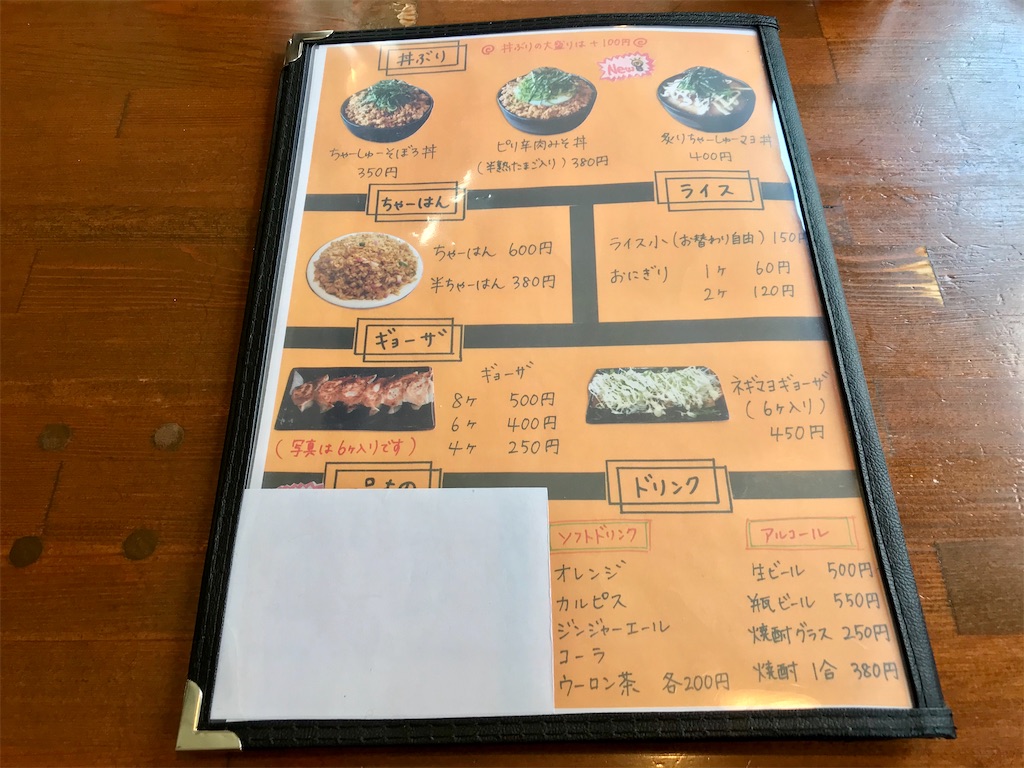 丼ぶり
◎ 丼ぶりの大盛りは+100円 ◎
New
ちゃーしゅーそぼろ丼
350円
ピリ辛肉みそ丼
(半熟たまご入り) 380円
炙りちゃーしゅーマヨ丼
400円
ちゃーはん
ちゃーはん 600円
半ちゃーはん 380円
ライス
ライス小(お替わり自由) 150円
おにぎり 1ヶ 60円
2ヶ 120円
ギョーザ
ギョーザ
8ヶ 500円
6ヶ 400円
4ヶ 250円
(写真は6ヶ入りです)
ネギマヨギョーザ
(6ヶ入り)
450円
ドリンク
ソフトドリンク
オレンジ
カルピス
ジンジャーエール
コーラ
ウーロン茶 各200円
アルコール
生ビール 500円
瓶ビール 550円
焼酎グラス 250円
焼酎 1合 380円